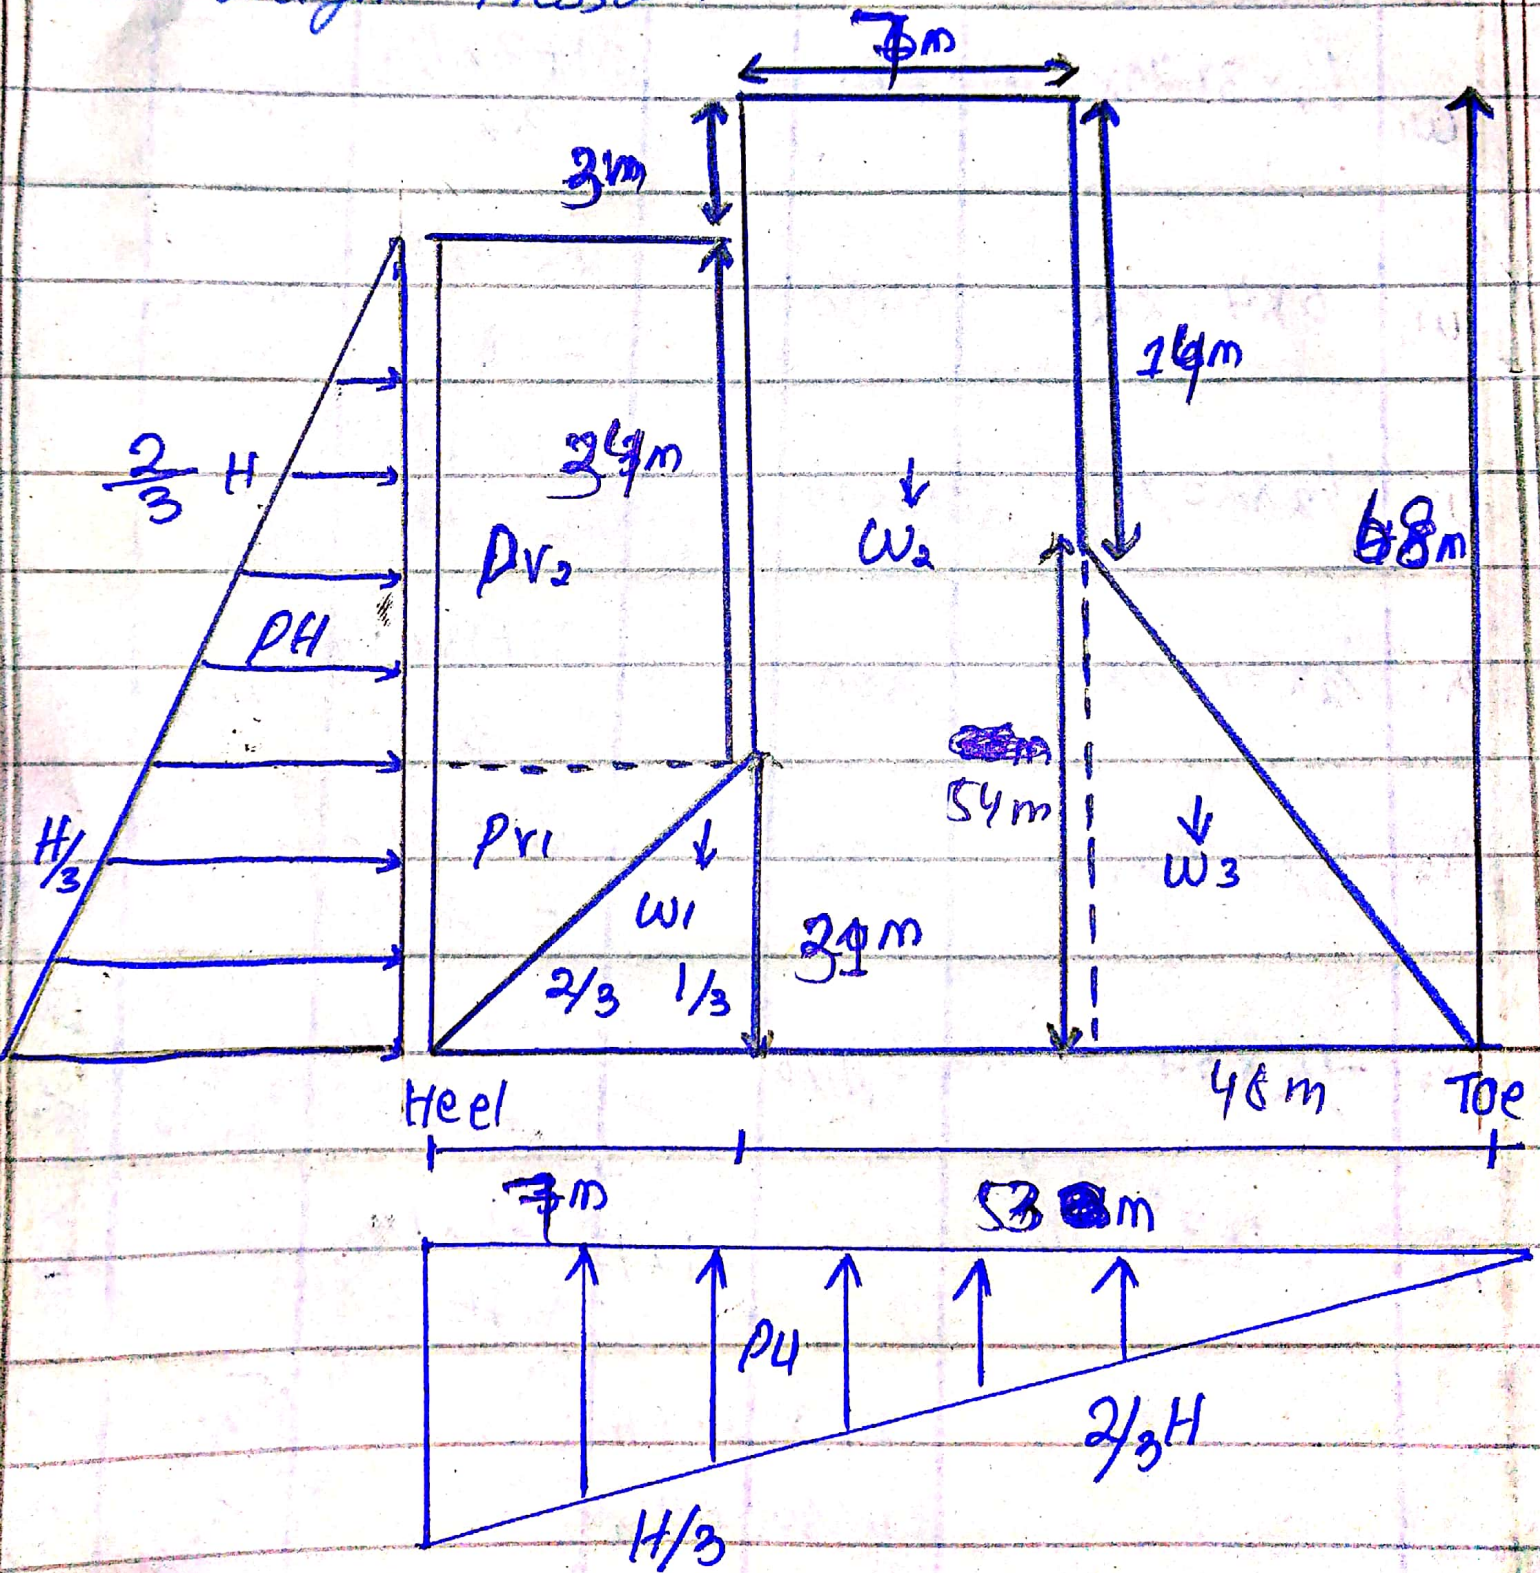 7m
3m
14m
2/3 H
34m
PV2
W2
68m
PH
m
54m
H/3
PV1
W1
W3
31m
2/3 1/3
Heel
Toe
7m
53 m
PU
2/3H
H/3